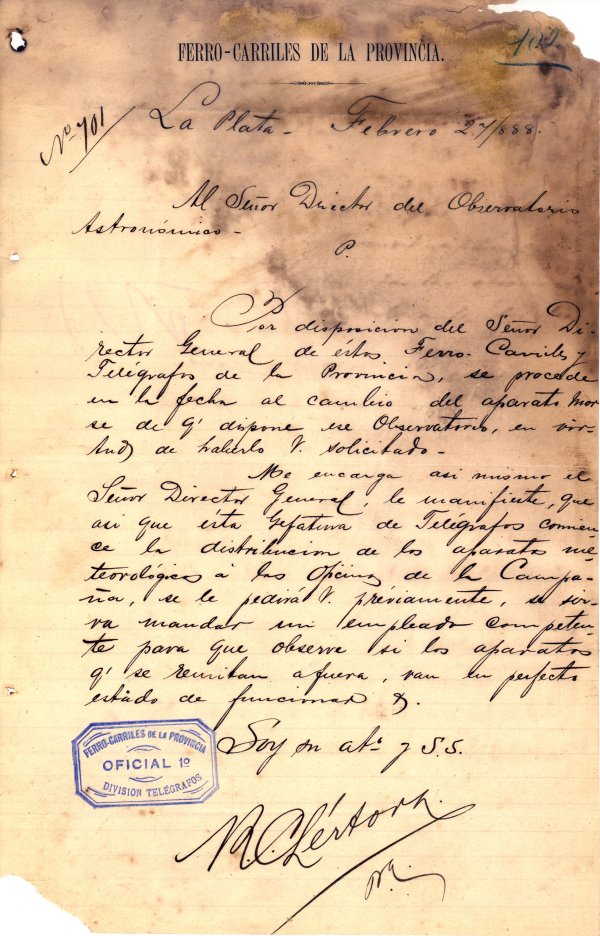 FERRO-CARRILES DE LA PROVINCIA.
Nº 701
La Plata - Febrero 27/888.
Al Señor Director del Observatorio
Astronómico -
P.
Por disposicion del Señor Di-
rector General de éstos Ferro-Carriles y
Telégrafos de la Provincia, se procede
en la fecha al cambio del aparato Mor-
se de q' dispone ese Observatorio, en vir-
tud de haberlo V. solicitado -
Me encarga asi mismo el
Señor Director General, le manifieste, que
asi que ésta Gefatura de Telégrafos comien-
ce la distribucion de los aparatos me-
teorológicos à las Oficinas de la Campa-
ña, se le pedirá V. préviamente, se sir-
va mandar un empleado competen-
te para que observe si los aparatos
q' se remitan afuera, van en perfecto
estado de funcionar
Soy su atº y S.S.
FERRO-CARRILES DE LA PROVINCIA
OFICIAL 1º
DIVISION TELÉGRAFOS